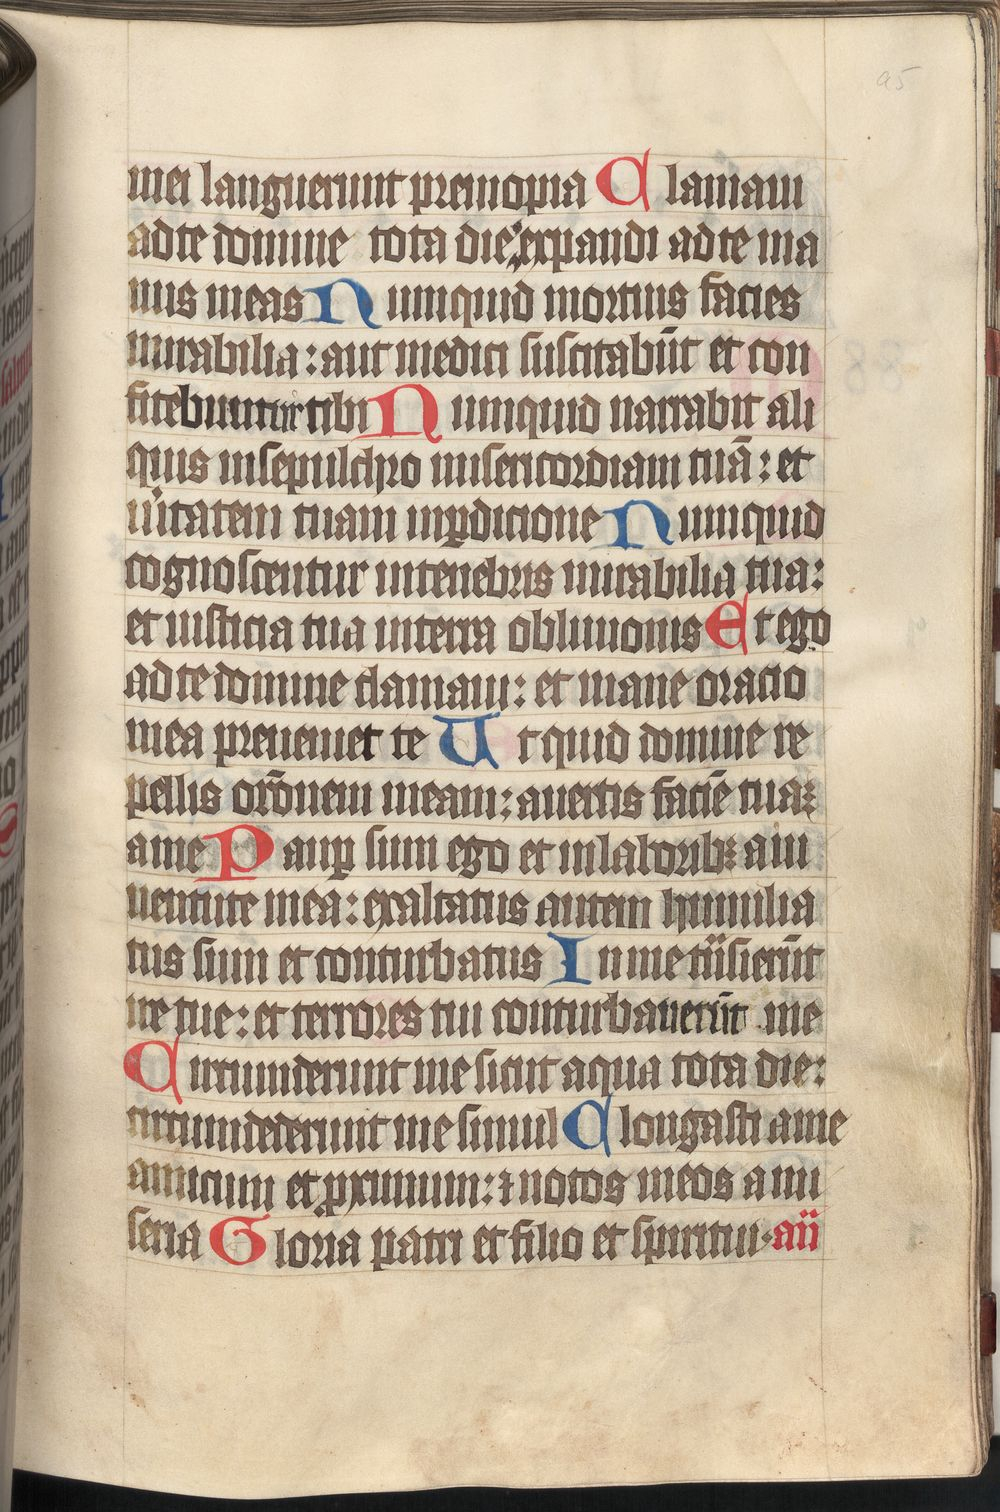 95
mei languerunt preinopia Clamaui
adte domine tota die: expandi adte ma
nus meas Numquid mortuis facies
mirabilia: aut medici suscitabūt et con
fitebuntur tibi Numquid narrabit ali
quis insepulchro misericordiam tuā: et
uitatem tuam inꝑdicione Numquid
cognoscentur intenebris mirabilia tua:
et iusticia tua interra obliuionis Et ego
adte domine clamaui: et mane oracio
mea preueniet te Ut quid domine re
pellis orōnem meam: auertis faciē tuā
ame Paup sum ego et inlaborib; aiu
uentute mea: exaltatus autem humilia
tus sum et conturbatus In me trāsierūt
ire tue: et terrores tui conturbauerūt me
Circumderunt me sicut aqua tota die:
circumdederunt me simul Elongasti ame
amicum et ꝓximum: ⁊ notos meos a mi
seria Gloria patri et filio et spiritui. añ